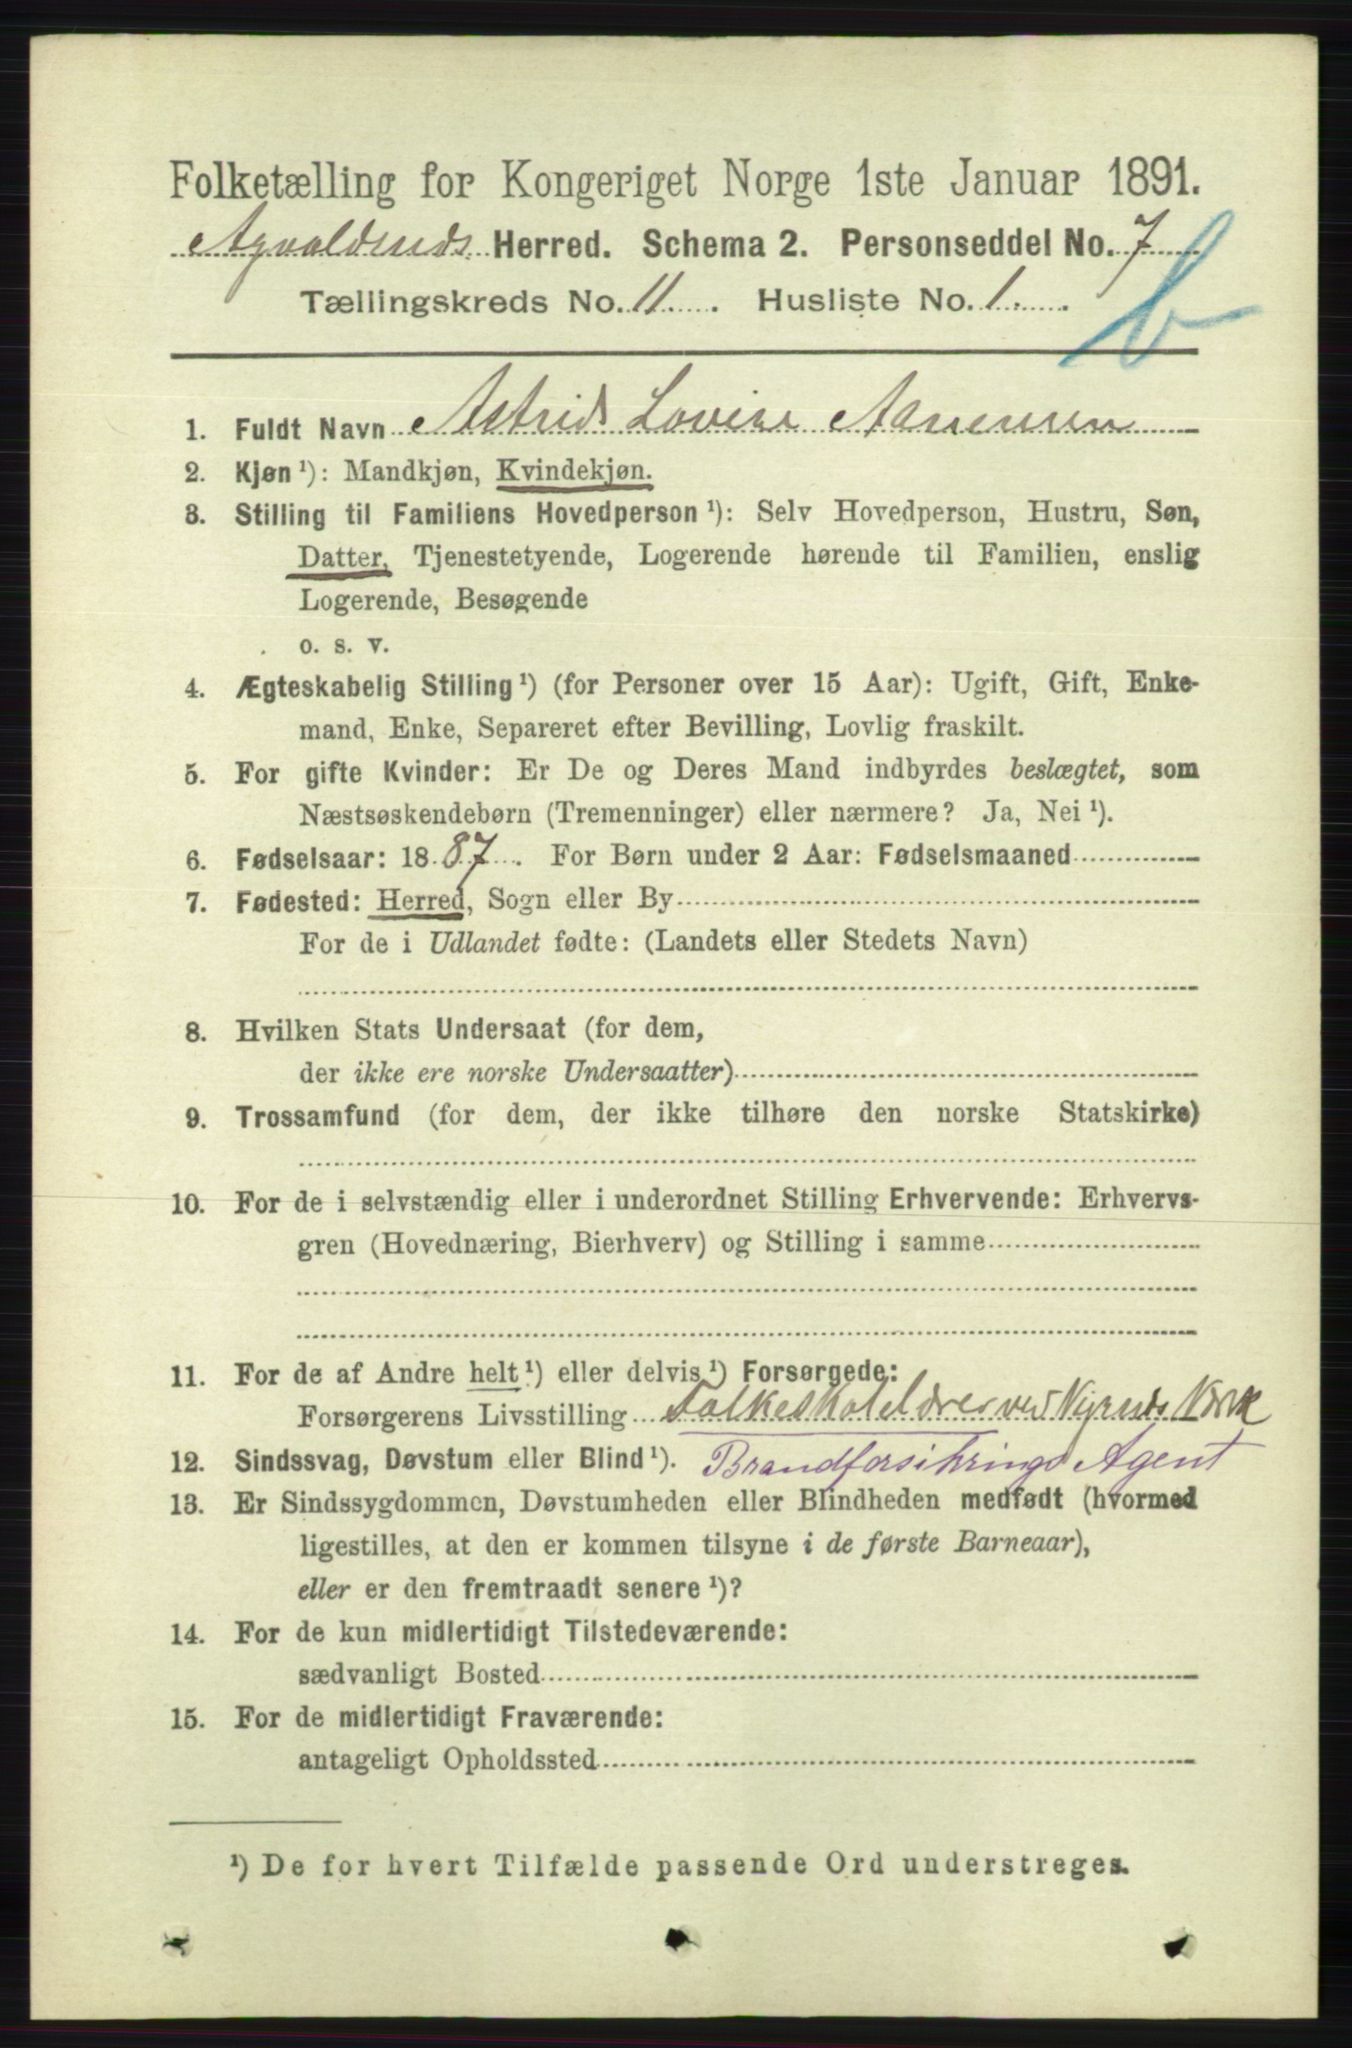 Folketælling for Kongeriget Norge 1ste Januar 1891.
Herred. Schema 2. Personseddel No. 7
Tællingskreds No. 11. Husliste No. 1.
b
1. Fuldt Navn Astrid Lovise
2. Kjøn ¹): Mandkjøn, Kvindekjøn.
3. Stilling til Familiens Hovedperson ¹): Selv Hovedperson, Hustru, Søn,
Datter, Tjenestetyende, Logerende hørende til Familien, enslig
Logerende, Besøgende
o. s. v.
4. Ægteskabelig Stilling ¹) (for Personer over 15 Aar): Ugift, Gift, Enke-
mand, Enke, Separeret efter Bevilling, Lovlig fraskilt.
5. For gifte Kvinder: Er De og Deres Mand indbyrdes beslægtet, som
Næstsøskendebørn (Tremenninger) eller nærmere? Ja, Nei ¹).
6. Fødselsaar: 1887. For Børn under 2 Aar: Fødselsmaaned
7. Fødested: Herred, Sogn eller By
For de i Udlandet fødte: (Landets eller Stedets Navn)
8. Hvilken Stats Undersaat (for dem,
der ikke ere norske Undersaatter)
9. Trossamfund (for dem, der ikke tilhøre den norske Statskirke)
10. For de i selvstændig eller i underordnet Stilling Erhvervende: Erhvervs-
gren (Hovednæring, Bierhverv) og Stilling i samme
11. For de af Andre helt ¹) eller delvis ¹) Forsørgede:
Forsørgerens Livsstilling Folkeskolelærer ved
12. Sindssvag, Døvstum eller Blind ¹). Brandforsikrings Agent
13. Er Sindssygdommen, Døvstumheden eller Blindheden medfødt (hvormed
ligestilles, at den er kommen tilsyne i de første Barneaar),
eller er den fremtraadt senere ¹)?
14. For de kun midlertidigt Tilstedeværende:
sædvanligt Bosted
15. For de midlertidigt Fraværende:
antageligt Opholdssted
¹) De for hvert Tilfælde passende Ord understreges.